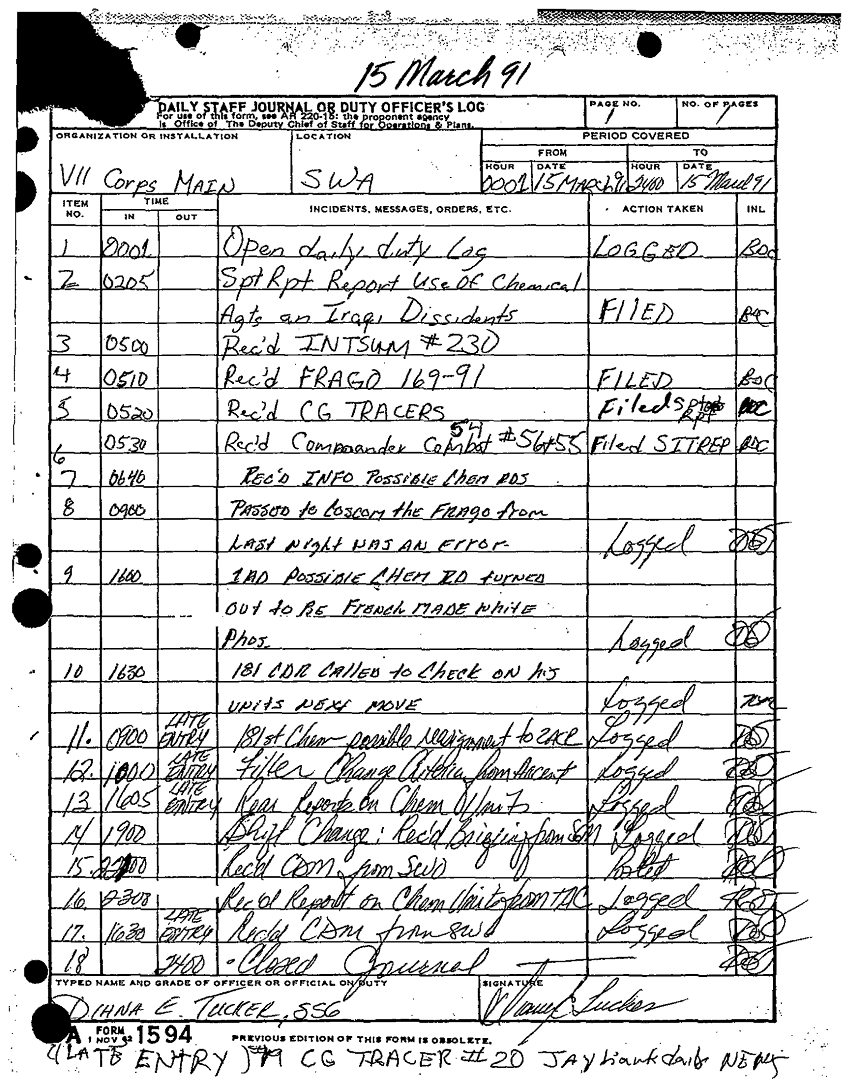 15 March 91
DAILY STAFF JOURNAL OR DUTY OFFICER'S LOG
For use of this form, see AR 220-15; the proponent agency
is Office of The Deputy Chief of Staff for Operations & Plans.
PAGE NO. 1
NO. OF PAGES 1
ORGANIZATION OR INSTALLATION
VII Corps MAIN
LOCATION
SWA
PERIOD COVERED
FROM TO
HOUR DATE HOUR DATE
0001 15 March 91 2400 15 March 91
ITEM NO. TIME IN OUT INCIDENTS, MESSAGES, ORDERS, ETC. ACTION TAKEN INL
1 0001 Open daily duty Log LOGGED BDC
2 0205 Spt Rpt Report Use Of Chemical
Agts on Iraqi Dissidents FILED BDC
3 0500 Rec'd INTSUM #230
4 0510 Rec'd FRAGO 169-91 FILED BDC
5 0520 Rec'd CG TRACERS Filed BDC
6 0530 Rec'd Commander Combat 54 #56+55 Filed SITREP BDC
7 0640 REC'D INFO POSSIBLE CHEM RDS
8 0900 PASSED to COSCOM the FRAGO from
LAST Night WAS AN ERROR- Logged
9 1600 1AD POSSIBLE CHEM RD turned
OUT to BE FRENCH MADE WHITE
Phos. Logged
10 1630 181 CDR CALLED to CHECK ON his
UNITS NEXT MOVE Logged
11. 0900 LATE ENTRY 181st Chem possible reassignment to 2ACR Logged
12. 1000 LATE ENTRY Filter Change Criteria from Arcent Logged
13 1605 LATE ENTRY Rear Reports on Chem Units Logged
14 1900 Shift Change: Rec'd Briefing from SGM Logged
15. 2200 Rec'd CDM from SWO Posted
16. 2300 Rec'd Report on Chem Units from TAC Logged
17. 1630 LATE ENTRY Rec'd CDM from SWO Logged
18 2400 Closed Journal
TYPED NAME AND GRADE OF OFFICER OR OFFICIAL ON DUTY
DIANA E. TUCKER, SSG
SIGNATURE
Diana E Tucker
A FORM 1 NOV 62 1594
PREVIOUS EDITION OF THIS FORM IS OBSOLETE.
(LATE ENTRY) #19 CG TRACER #20 JAYhawk daily NEWS